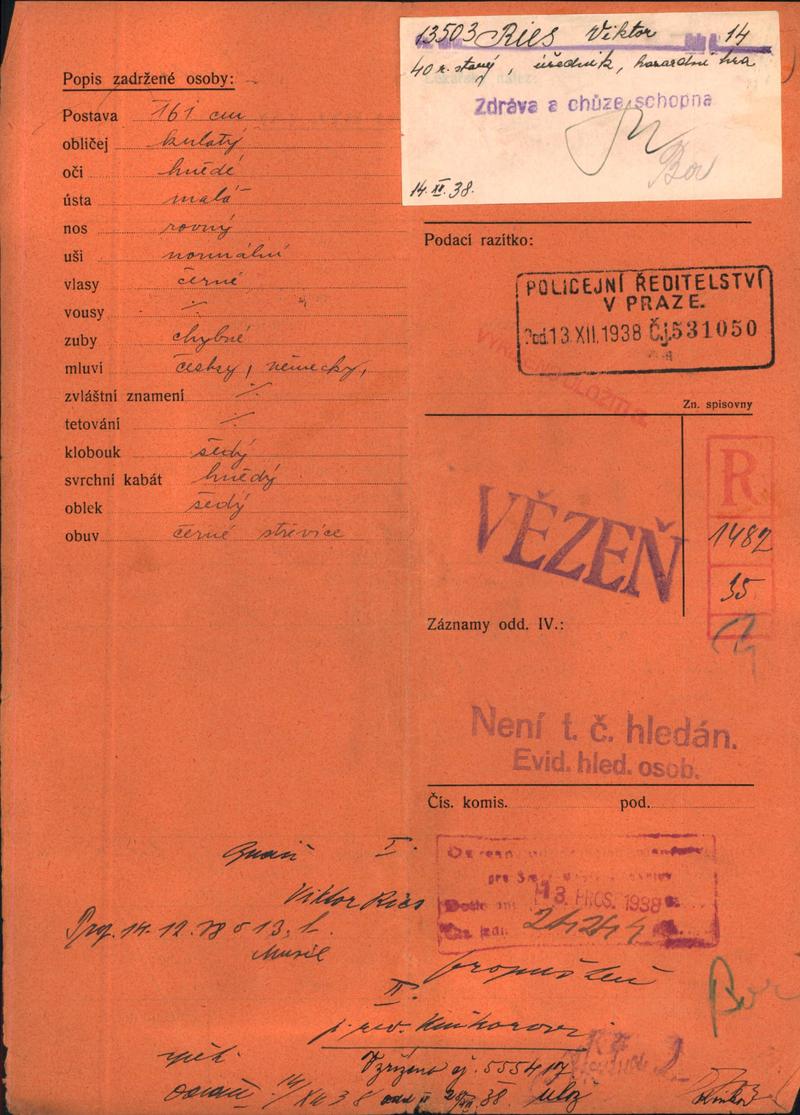 13503 Ries Viktor 14
40 r. starý, úředník, hazardní hra
Zdráva a chůze schopna
Bor
14.XII.38.
Popis zadržené osoby:
Postava 161 cm
obličej kulatý
oči hnědé
ústa malá
nos rovný
uši normální
vlasy černé
vousy ·/·
zuby chybné
mluví česky, německy,
zvláštní znamení ·/·
tetování ·/·
klobouk šedý
svrchní kabát hnědý
oblek šedý
obuv černé střevíce
Podací razítko:
POLICEJNÍ ŘEDITELSTVÍ
V PRAZE.
Pod. 13.XII.1938 Čj. 531050
Zn. spisovny
VĚZEŇ
R
1482
35
Záznamy odd. IV.:
Není t. č. hledán.
Evid. hled. osob.
Čís. komis. pod.
13. PROS. 1938
I.
Viktor Ries
Prop. 14.12.38 o 13. h.
Musil
propuštění
II.
Bor